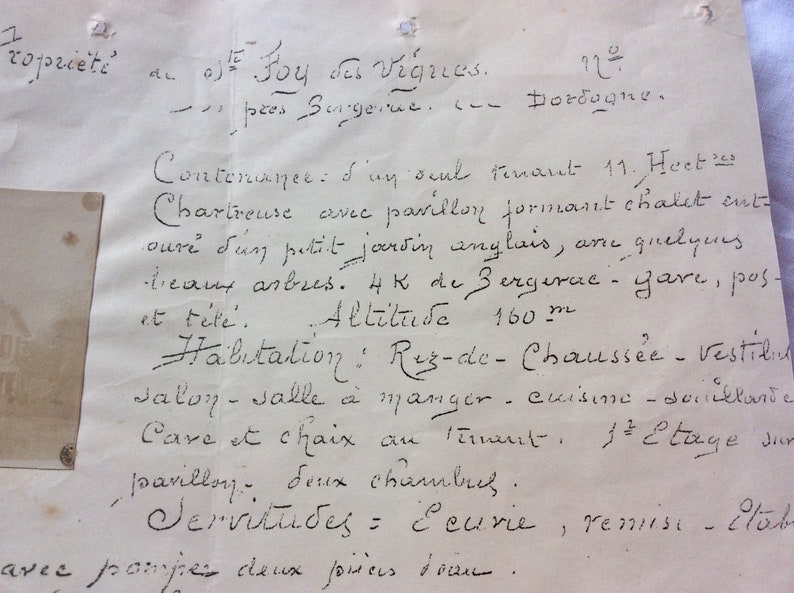 Propriété de Ste Foy des Vignes. No.
près Bergerac. Dordogne.
Contenance = d'un seul tenant 11. Hectres
Chartreuse avec pavillon formant chalet ent-
ouré d'un petit jardin anglais, avec quelques
beaux arbres. 4 K de Bergerac - gare, pos-
et télé. Altitude 160 m
Habitation : Rez-de-Chaussée - Vestibu
salon - salle à manger - cuisine - souillarde
Cave et chaix au tenant. 1r Etage sur
pavillon - deux chambres.
Servitudes = Ecurie, remise - Etab
avec pompes deux pièces d'eau.